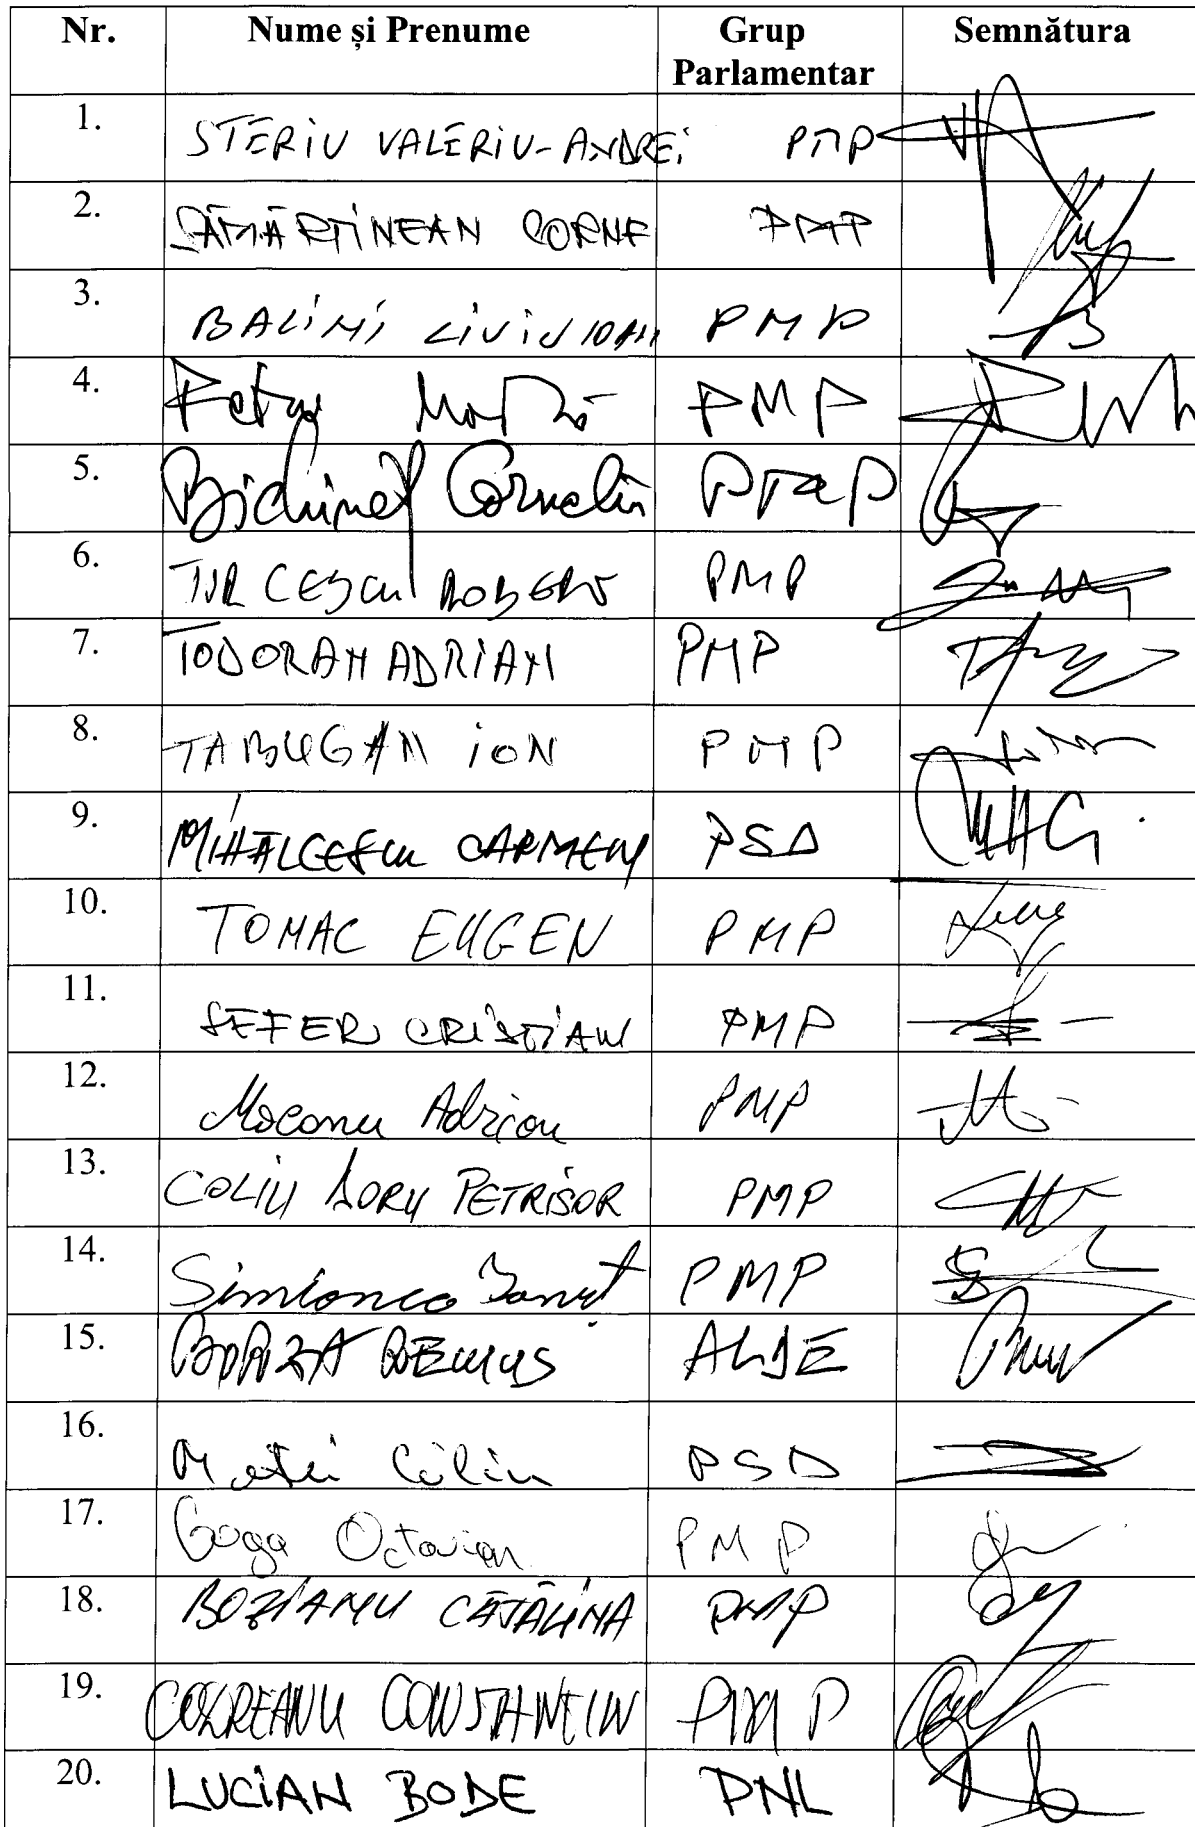 Nr. Nume și Prenume Grup Parlamentar Semnătura
1. STERIU VALERIU-ANDREI PMP
2. SĂMĂRTINEAN CORNE PMP
3. BALINI LIVIU IOAN PMP
4. Petru PMP
5. Bichineț Corneliu PMP
6. TURCESCU ROBERT PMP
7. TODORAN ADRIAN PMP
8. TABUGAN ION PMP
9. MIHĂLCESCU CARMEN PSD
10. TOMAC EUGEN PMP
11. SEFER CRISTIAN PMP
12. Mocanu Adrian PMP
13. COLIU DORU PETRISOR PMP
14. Simionca Ionuț PMP
15. BORZA REMUS ALDE
16. Matei Călin PSD
17. Goga Octavian PMP
18. BOZIANU CĂTĂLINA PMP
19. CODREANU CONSTANTIN PMP
20. LUCIAN BODE PNL